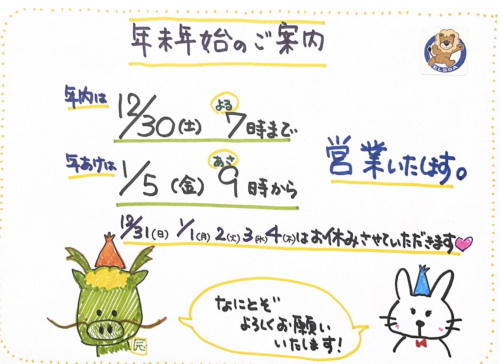 年末年始のご案内
年内は 12/30(土) よる 7時まで
年あけは 1/5(金) あさ 9時から
営業いたします。
12/31(日) 1/1(月) 2(火) 3(水) 4(木)はお休みさせていただきます
なにとぞ
よろしくお願い
いたします!
辰